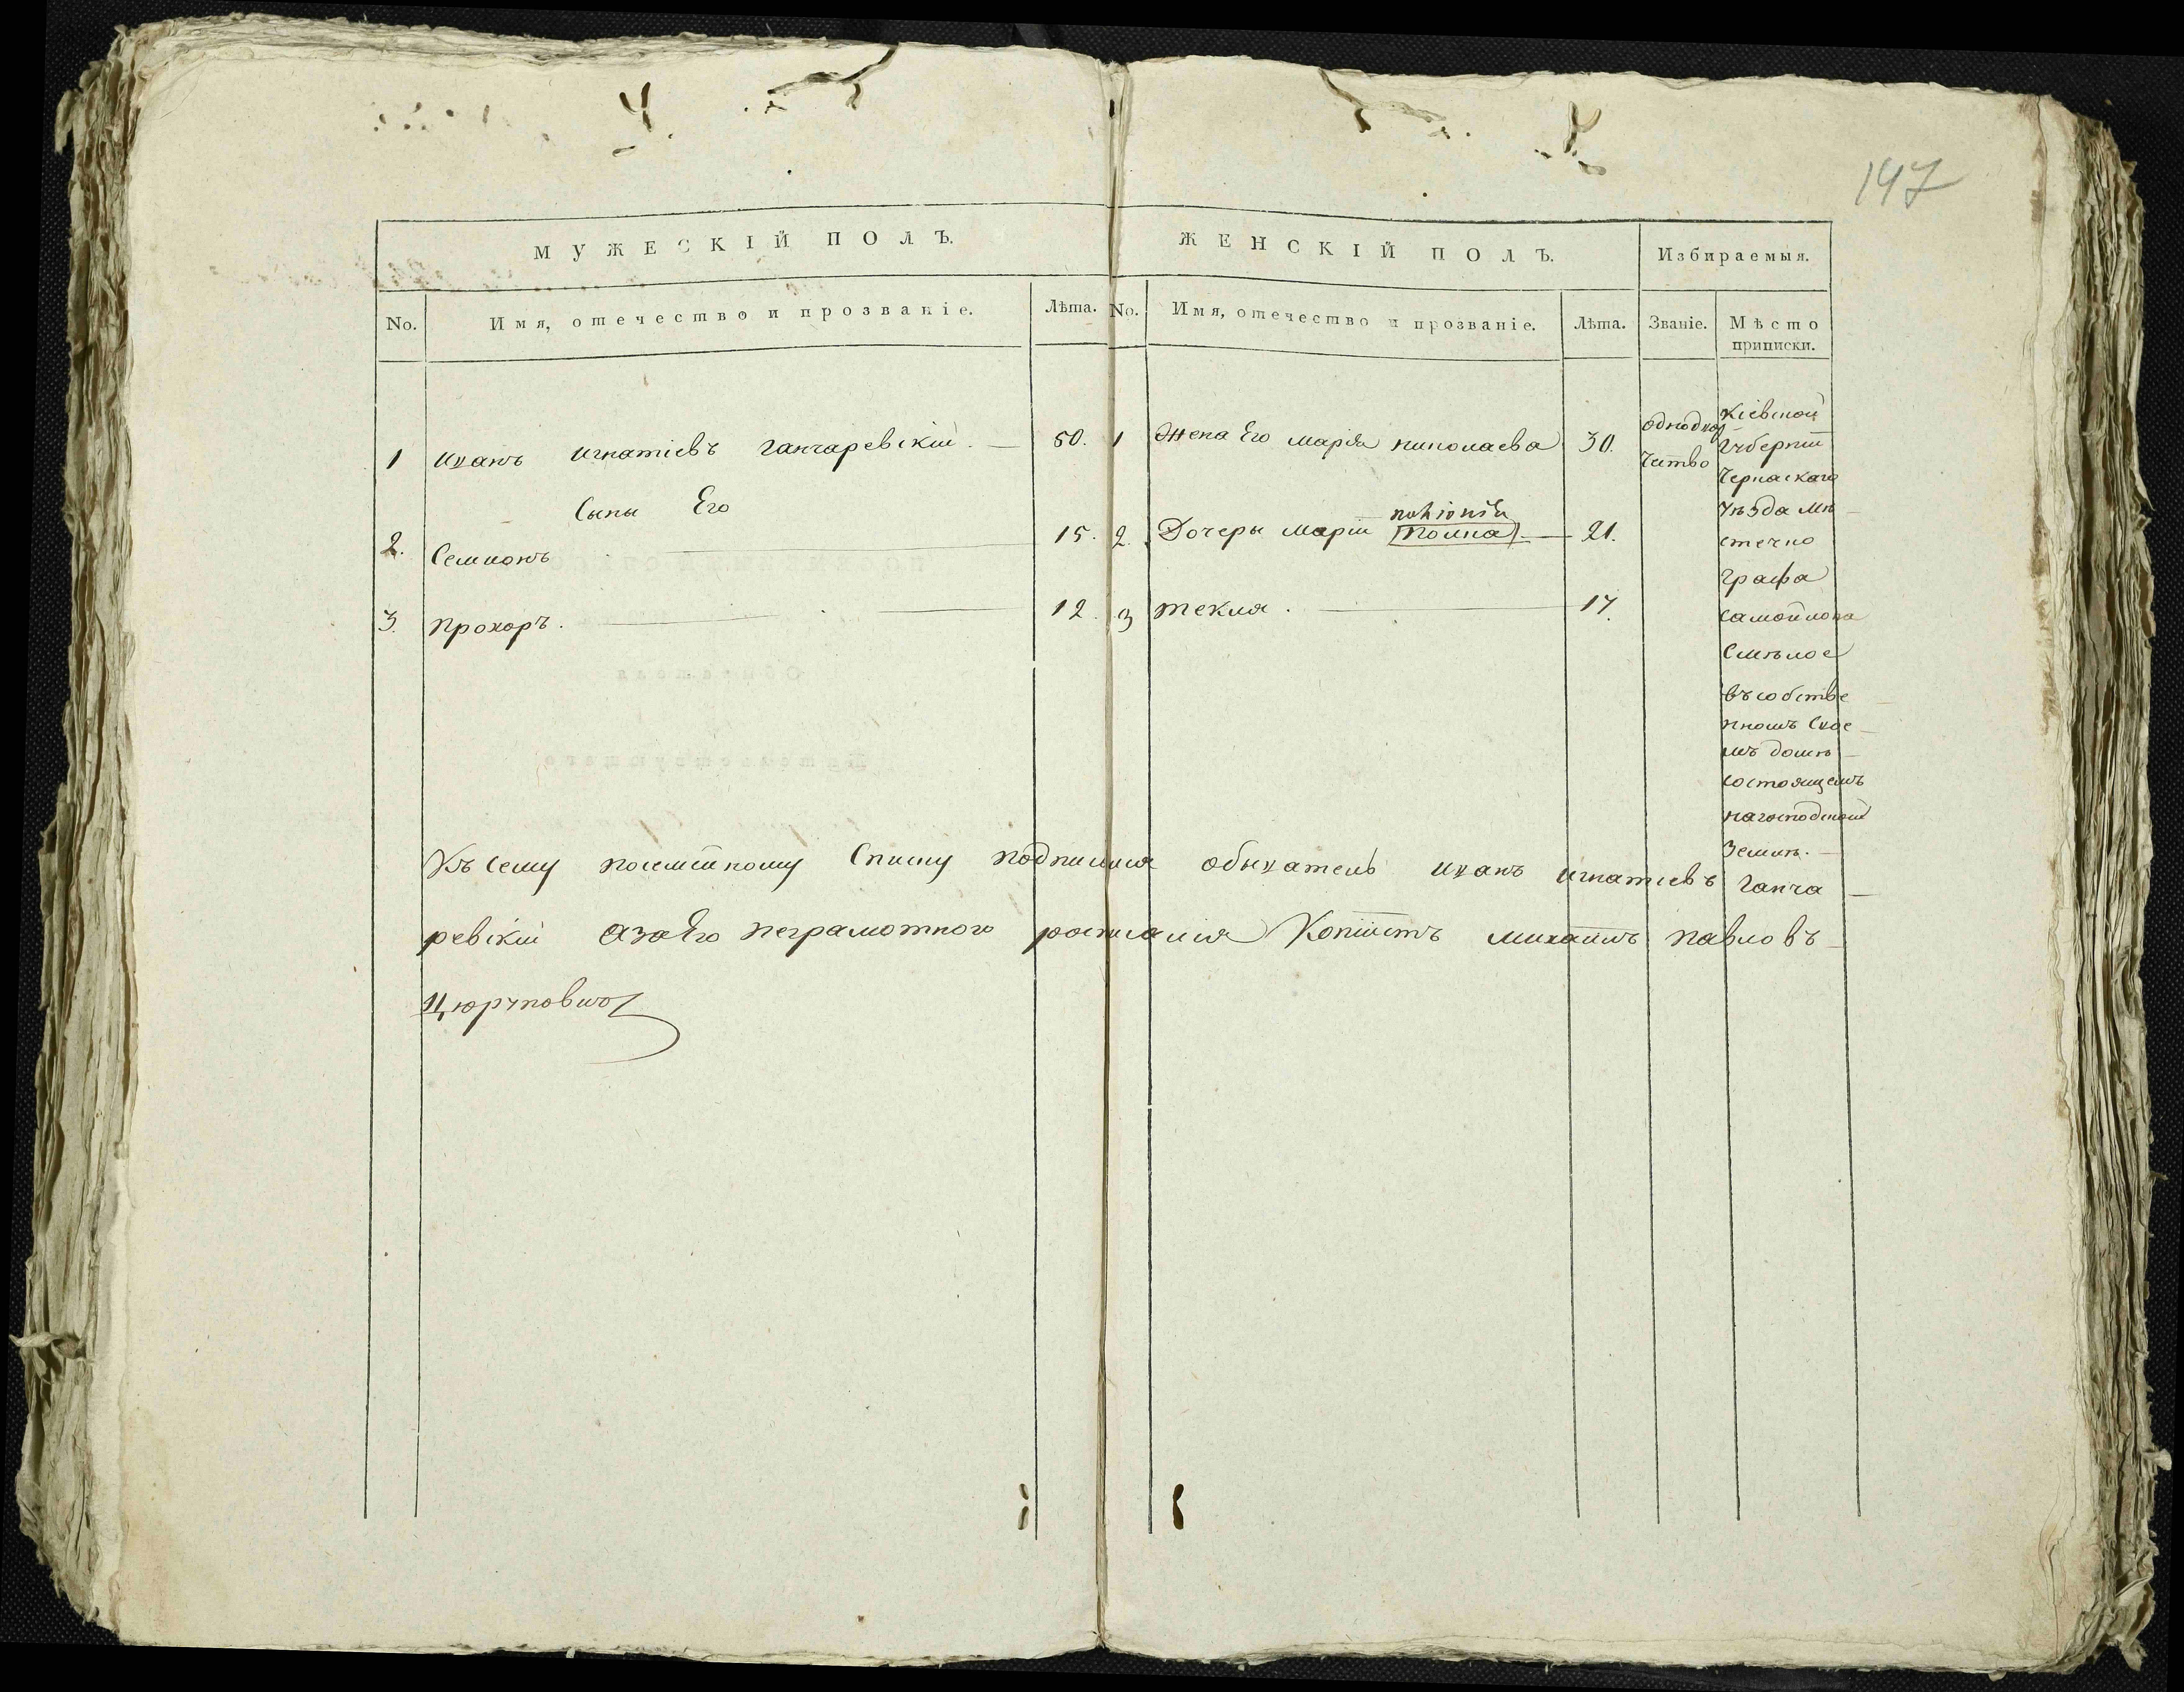 147
МУЖЕСКІЙ ПОЛЪ.
ЖЕНСКІЙ ПОЛЪ.
Избираемыя.
No.
Имя, отечество и прозваніе.
Лѣта.
No.
Имя, отечество и прозваніе.
Лѣта.
Званіе.
Мѣсто
приписки.
1 Иванъ Игнатіевъ Ганчаревскій. 50.
Сыны Его
2. Семионъ 15.
3. Прохоръ. 12.
1 Жена Его Марія Николаева 30.
2. Дочеры Маріи 21.
3 Текля. 17.
однодвор
чество
Кіевской
Губерніи
Черкаскаго
Уѣзда мѣ
стечко
Графа
Самойлова
Смѣлое
въ собстве
нномъ свое
мъ домѣ
состоящемъ
на господской
землѣ.
Къ сему посемейному Списку подписался обыватель Иванъ Игнатіевъ Ганча
ревскій А за Его неграмотного росписался Копіистъ Михаилъ Павловъ